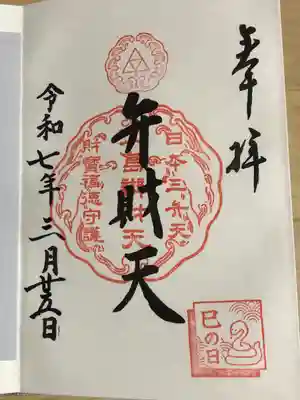 奉拝
日本三弁天
弁財天
財寶福徳守護
令和七年三月廿五日
巳の日